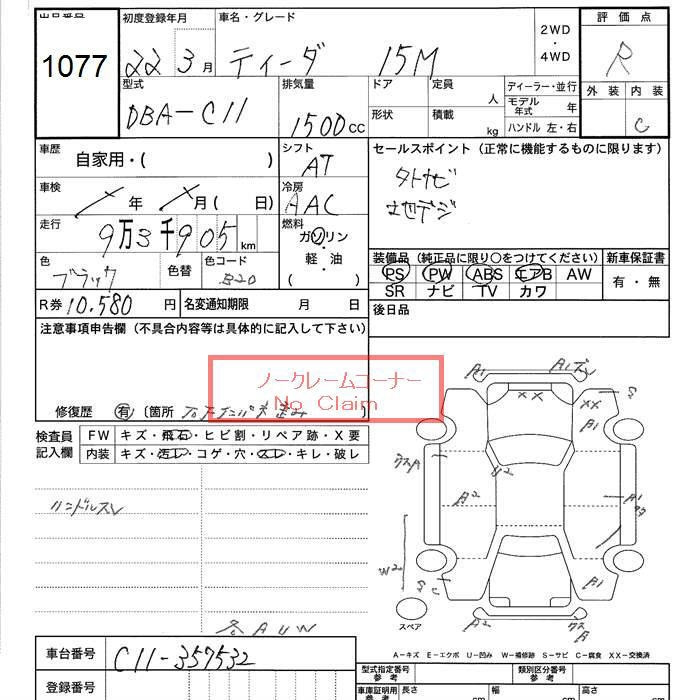 出品番号 初度登録年月 車名・グレード 2WD ・ 4WD 評価点
1077 22 3月 ティーダ 15M R
型式 排気量 ドア 定員 人 ディーラー・並行 外装 内装
DBA-C11 1500cc 形状 積載 kg モデル年式 年 ハンドル 左・右 C
車歴 自家用・( ) シフト AT セールスポイント (正常に機能するものに限ります)
車検 年 月( 日) 冷房 AAC
走行 9万3千905km 燃料 ガソリン・軽・油 ( )
地デジ
装備品 (純正品に限り○をつけてください) 新車保証書
色 ブラック 色替 色コード B20 PS PW ABS エアB AW 有・無
SR ナビ TV カワ
R券 10.580円 名変通知期限 月 日 後日品
注意事項申告欄 (不具合内容等は具体的に記入して下さい)
ノークレームコーナー
No Claim
修復歴 有 〔箇所
検査員記入欄 FW キズ・飛石・ヒビ割・リペア跡・X要
内装 キズ・汚レ・コゲ・穴・スレ・キレ・破レ
ハンドルスレ
各AUW
A1 XX XX S
A1
A2 U2 A1
W2 S C A1
スペア A2
A-キズ E-エクボ U-凹み W-補修跡 S-サビ C-腐食 XX-交換済
車台番号 C11-357532
型式指定番号 参考 類別区分番号 参考
登録番号 車庫証明用 参考 長さ cm 幅 cm 高さ cm